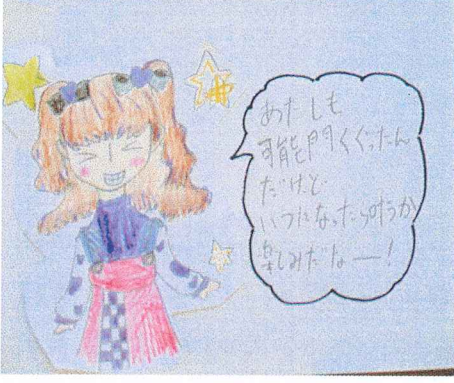 あたしも
可能門くぐったん
だけど
いつになったら叶うか
楽しみだなー!